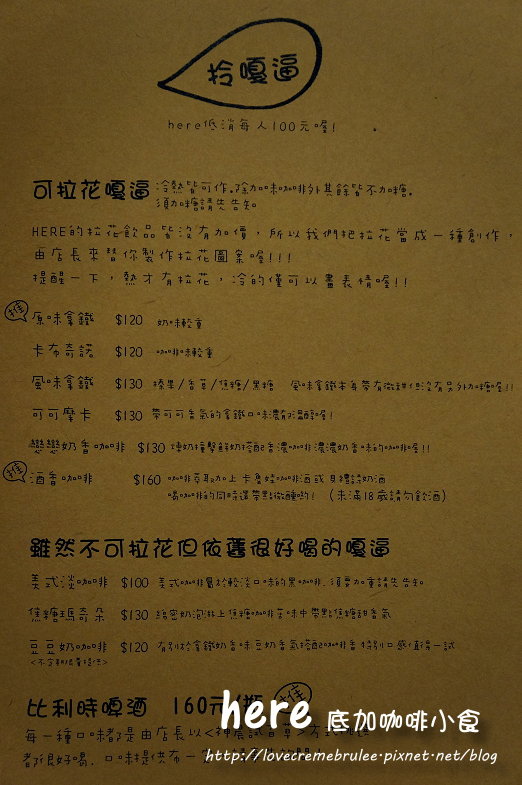 拎嘎逼
here低消每人100元喔!
可拉花嘎逼 冷熱皆可作.除加味咖啡外其餘皆不加糖.
須加糖請先告知
HERE的拉花飲品皆沒有加價，所以我們把拉花當成一種創作，
由店長來替你製作拉花圖案喔!!!
提醒一下，熱才有拉花，冷的僅可以畫表情喔!!
推 原味拿鐵 $120 奶味較重
卡布奇諾 $120 咖啡味較重
風味拿鐵 $130 榛果/香草/焦糖/黑糖 風味拿鐵本身帶有微甜但沒有另外加糖喔!!
可可摩卡 $130 帶可可香氣的拿鐵口味濃郁溫醇喔!
戀戀奶香咖啡 $130 煉奶撞擊鮮奶搭配香濃咖啡濃濃奶香味的咖啡喔!!
推 酒香咖啡 $160 咖啡萃取加上卡魯哇咖啡酒或貝禮詩奶酒
喝咖啡的同時還帶點微醺喲! (未滿18歲請勿飲酒)
雖然不可拉花但依舊很好喝的嘎逼
美式淡咖啡 $100 美式咖啡屬於較淡口味的黑咖啡.須要加重請先告知
焦糖瑪奇朵 $130 綿密奶泡淋上焦糖咖啡苦味中帶點焦糖甜香氣
豆豆奶咖啡 $120 有別於拿鐵奶香味豆奶香氣搭配咖啡香特別口感值得一試
比利時啤酒 160元/瓶 推
每一種口味都是由店長以
都很好喝. 口味提供布一
here 底加咖啡小食
http://lovecremebrulee.pixnet.net/blog